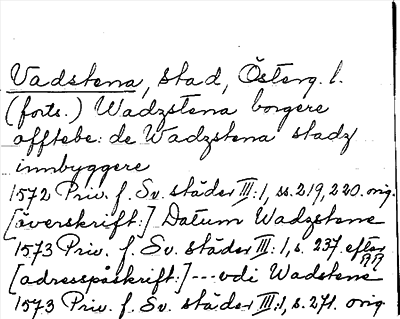 Vadstena, stad, Österg. l.
(forts.) Wadzstena borgere
offtebe: de Wadzstena stadz
innbyggere
1572 Priv. f. Sv. städer III:1, ss. 219, 220. orig.
[överskrift:] Datum Wadzstene
1573 Priv. f. Sv. städer III:1, s. 237. efter
[adresspåskrift:] --- vdi Wadstene
1573 Priv. f. Sv. städer III:1, s. 271. orig